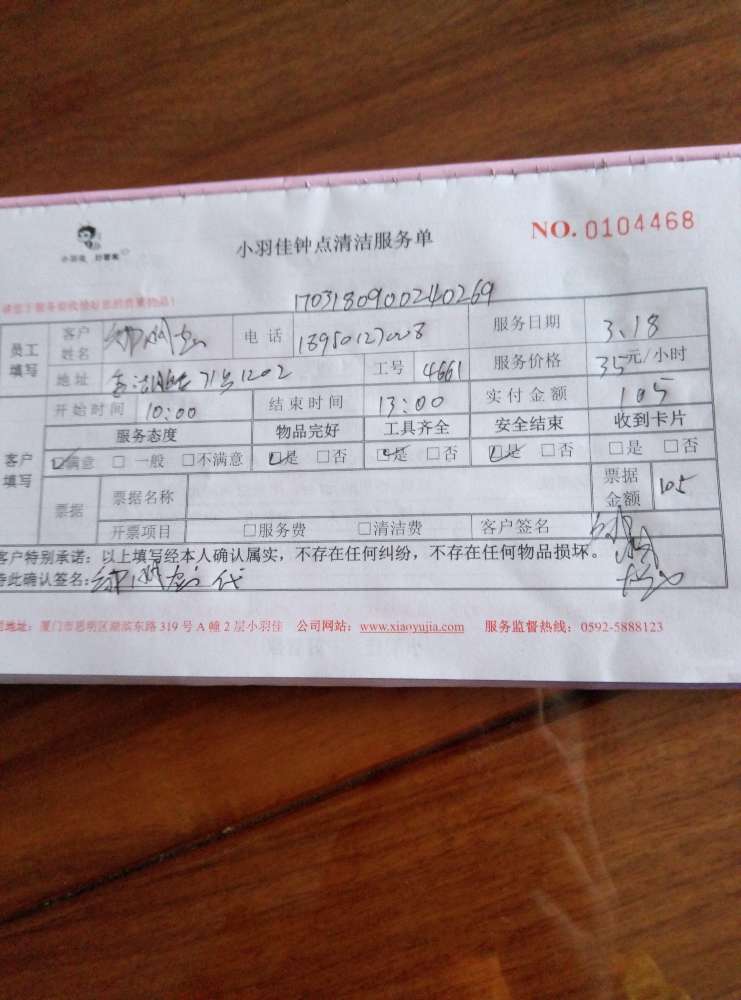 小羽佳 好管家
小羽佳钟点清洁服务单
NO. 0104468
170318090024026​9
员工填写 客户姓名 电话 18950127008 服务日期 3.18
地址 71号1202 工号 4661 服务价格 35元/小时
客户填写 开始时间 10:00 结束时间 13:00 实付金额 105
服务态度 物品完好 工具齐全 安全结束 收到卡片
☑满意 □一般 □不满意 ☑是 □否 ☑是 □否 ☑是 □否 □是 □否
票据 票据名称 票据金额 105
开票项目 □服务费 □清洁费 客户签名
客户特别承诺：以上填写经本人确认属实，不存在任何纠纷，不存在任何物品损坏。
特此确认签名: 代
地址：厦门市思明区湖滨东路319号A幢2层小羽佳 公司网站：www.xiaoyujia.com 服务监督热线：0592-5888123